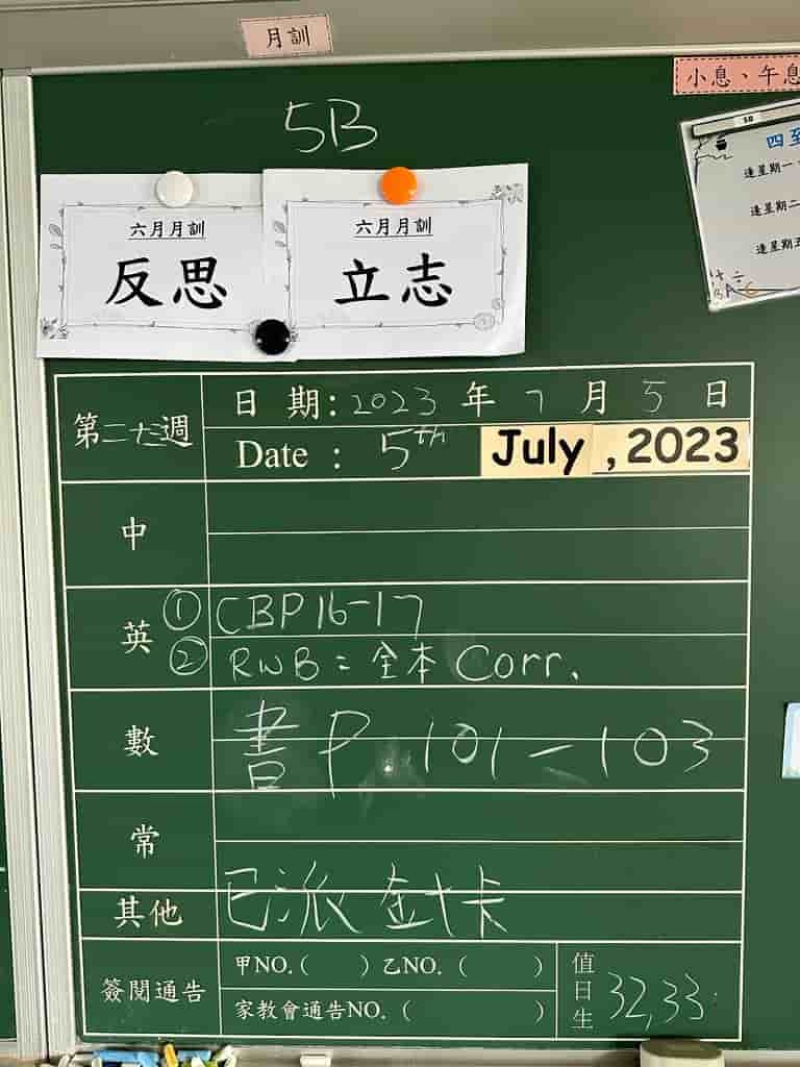 月訓
小息、午息
5B
5B
四至
逢星期一
逢星期二
逢星期五
六月月訓
反思
六月月訓
立志
第二十三週
日期:2023年7月5日
Date : 5th July , 2023
中
英
① CBP16-17
② RWB = 全本 Corr.
數
書 P.101-103
常
其他
已派金卡
簽閱通告
甲NO.( ) 乙NO. ( )
家教會通告NO. ( )
值日生 32,33